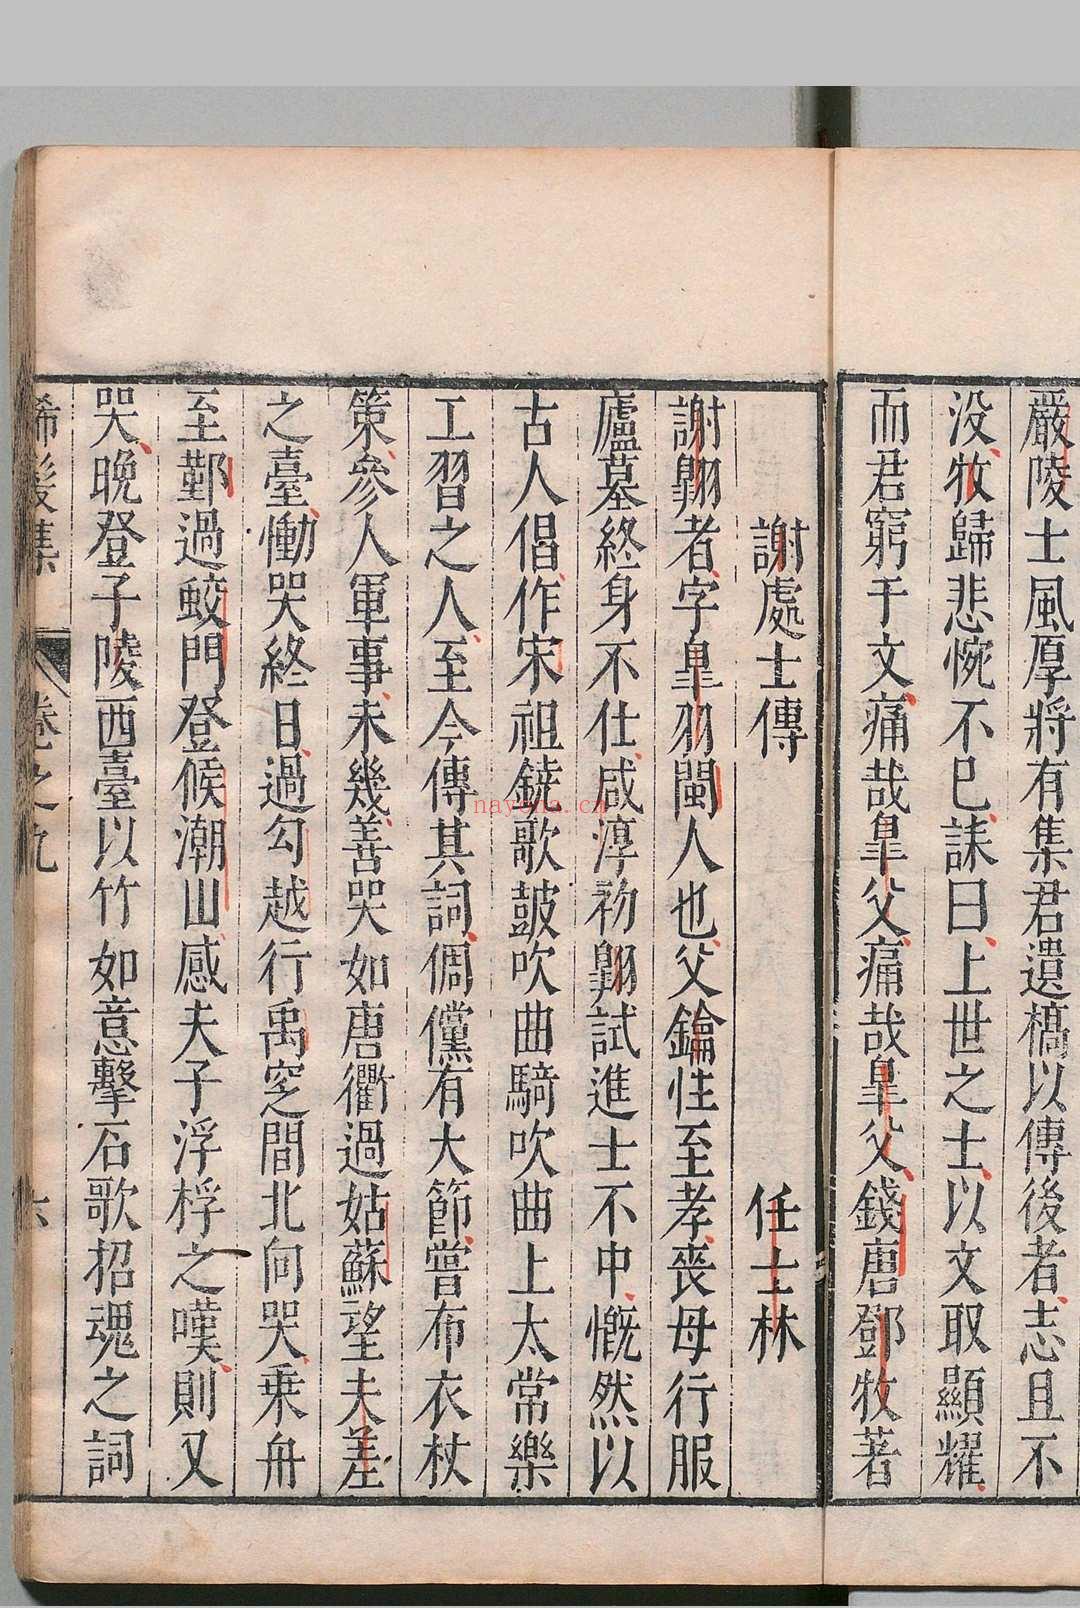 嚴陵士風厚將有集君遺槁以傳後者志且不
没牧歸悲惋不已誄曰上世之士以文取顯耀
而君窮于文痛哉皐父痛哉皐父錢唐鄧牧著
謝處士傳
任士林
謝翱者字皐羽閩人也父鑰性至孝喪母行服
廬墓終身不仕咸淳初翱試進士不中慨然以
古人倡作宋祖鐃歌鼓吹曲騎吹曲上太常樂
工習之人至今傳其詞倜儻有大節嘗布衣杖
策參人軍事未幾善哭如唐衢過姑蘇望夫差
之臺慟哭終日過勾越行禹窆間北向哭乘舟
至鄞過蛟門登候潮山感夫子浮桴之嘆則又
哭晚登子陵西臺以竹如意擊石歌招魂之詞
晞髮集
卷之九
六
nayona.cn